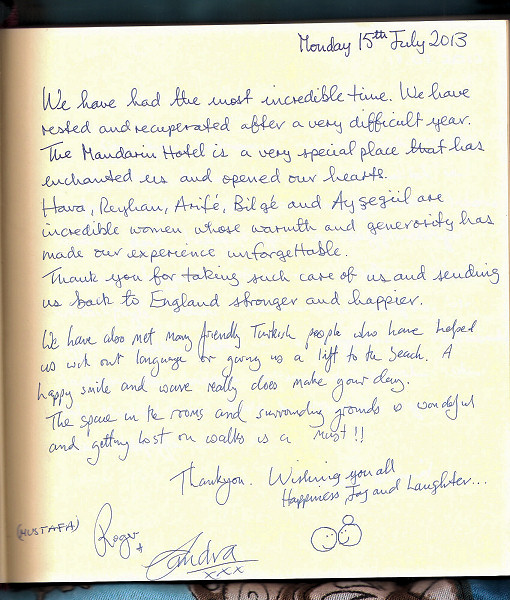 Monday 15th July 2013
We have had the most incredible time. We have
rested and recuperated after a very difficult year.
The Mandarin Hotel is a very special place that has
enchanted us and opened our hearts.
Hava, Reyhan, Arifé, Bilgé and Ayşegül are
incredible women whose warmth and generosity has
made our experience unforgettable.
Thank you for taking such care of us and sending
us back to England stronger and happier.
We have also met many friendly Turkish people who have helped
us with out language or giving us a lift to the beach. A
happy smile and wave really does make your day.
The space in the rooms and surrounding grounds is wonderful
and getting lost on walks is a must!!
Thankyou. Wishing you all
Happiness, Joy and Laughter...
(MUSTAFA) Roger +
Sandra
xxx